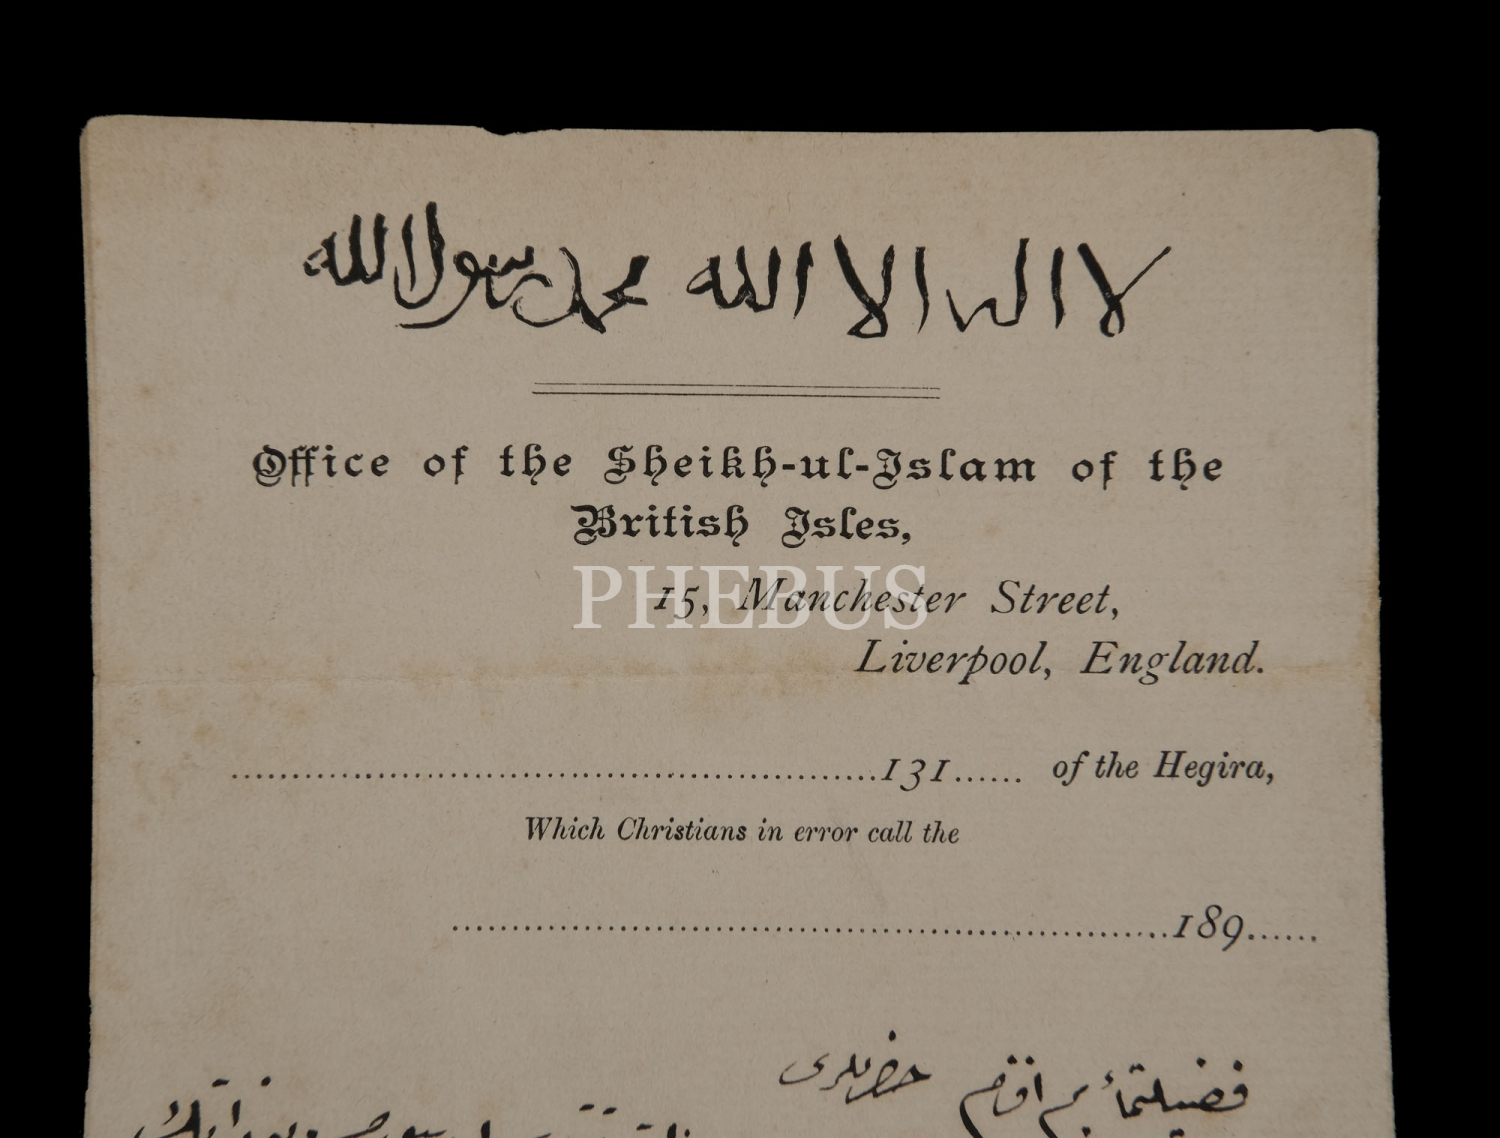 لا اله الا الله محمد رسول الله
Office of the Sheikh-ul-Islam of the
British Isles,
PHEBUS
15, Manchester Street,
Liverpool, England.
..........131...... of the Hegira,
Which Christians in error call the
..........189......
حضرتلری